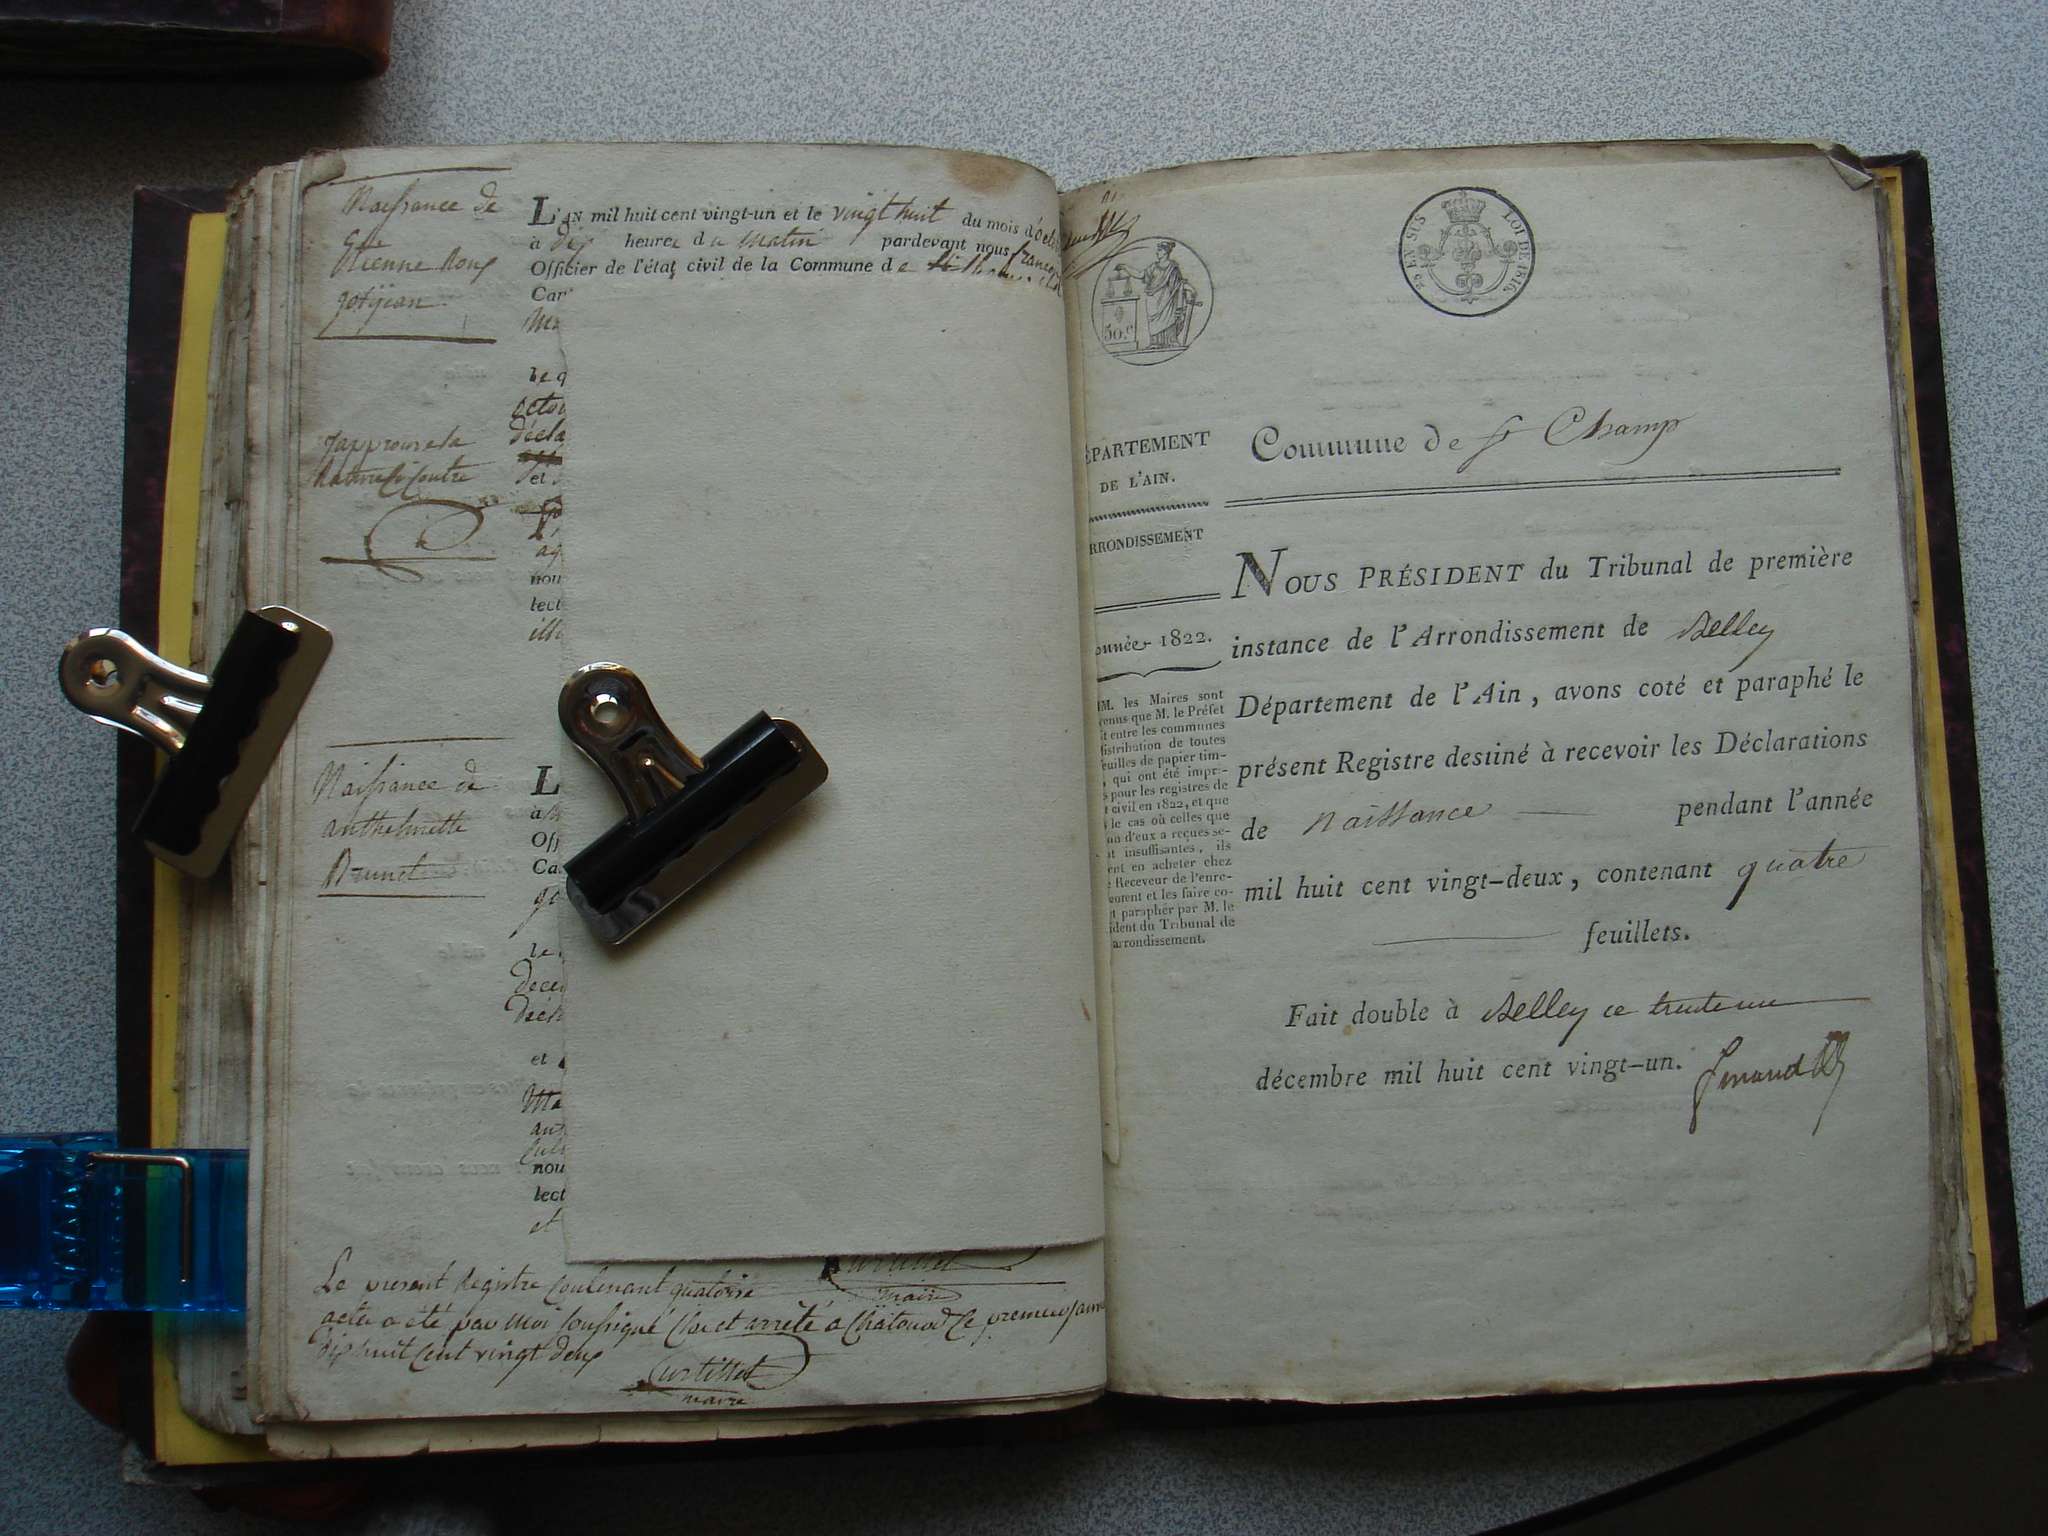 Naissance de
Etienne Roux
L'AN mil huit cent vingt-un et le vingt huit du mois d'octo
à dix heures du matin pardevant nous françois
Officier de l'état civil de la Commune de
Car
Ma
le q
octo
décla
et
j'approuve la
rature ci contre
ag
nou
lect
ille
Naissance de
anthelmette
Brunet
L
à
Off
Ca
le
decem
Décla
et
Ma
an
nou
lect
et
maire
Le present Registre contenant quatorze
actes a été par moi soussigné clos et arrêté à Châtonod le premier janv
dix huit cent vingt deux
Curtillet
maire
50.c
25 EN SUS LOI DE 1816.
ÉPARTEMENT
DE L'AIN.
RRONDISSEMENT
onnée 1822.
M. les Maires sont
venus que M. le Préfet
it entre les communes
distribution de toutes
feuilles de papier tim-
, qui ont été impri-
s pour les registres de
t civil en 1822, et que
s le cas où celles que
un d'eux a reçues se-
nt insuffisantes, ils
ent en acheter chez
e Receveur de l'enre-
ement et les faire co-
t parapher par M. le
ident du Tribunal de
arrondissement.
Commune de St Champ
NOUS PRÉSIDENT du Tribunal de première
instance de l'Arrondissement de Belley
Département de l'Ain, avons coté et paraphé le
présent Registre destiné à recevoir les Déclarations
de naissance pendant l'année
mil huit cent vingt-deux, contenant quatre
feuillets.
Fait double à Belley ce trente un
décembre mil huit cent vingt-un.